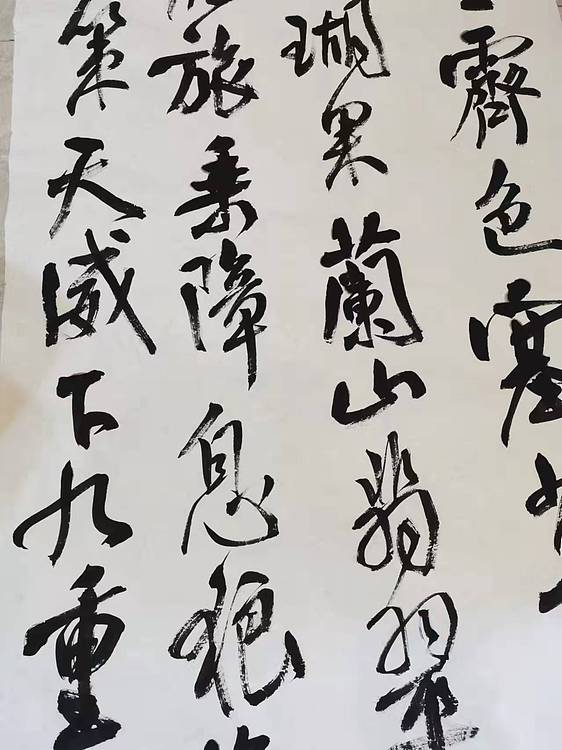 霽色塞
瑚果蘭山翡翠
旅乘障息狼
策天威下九重